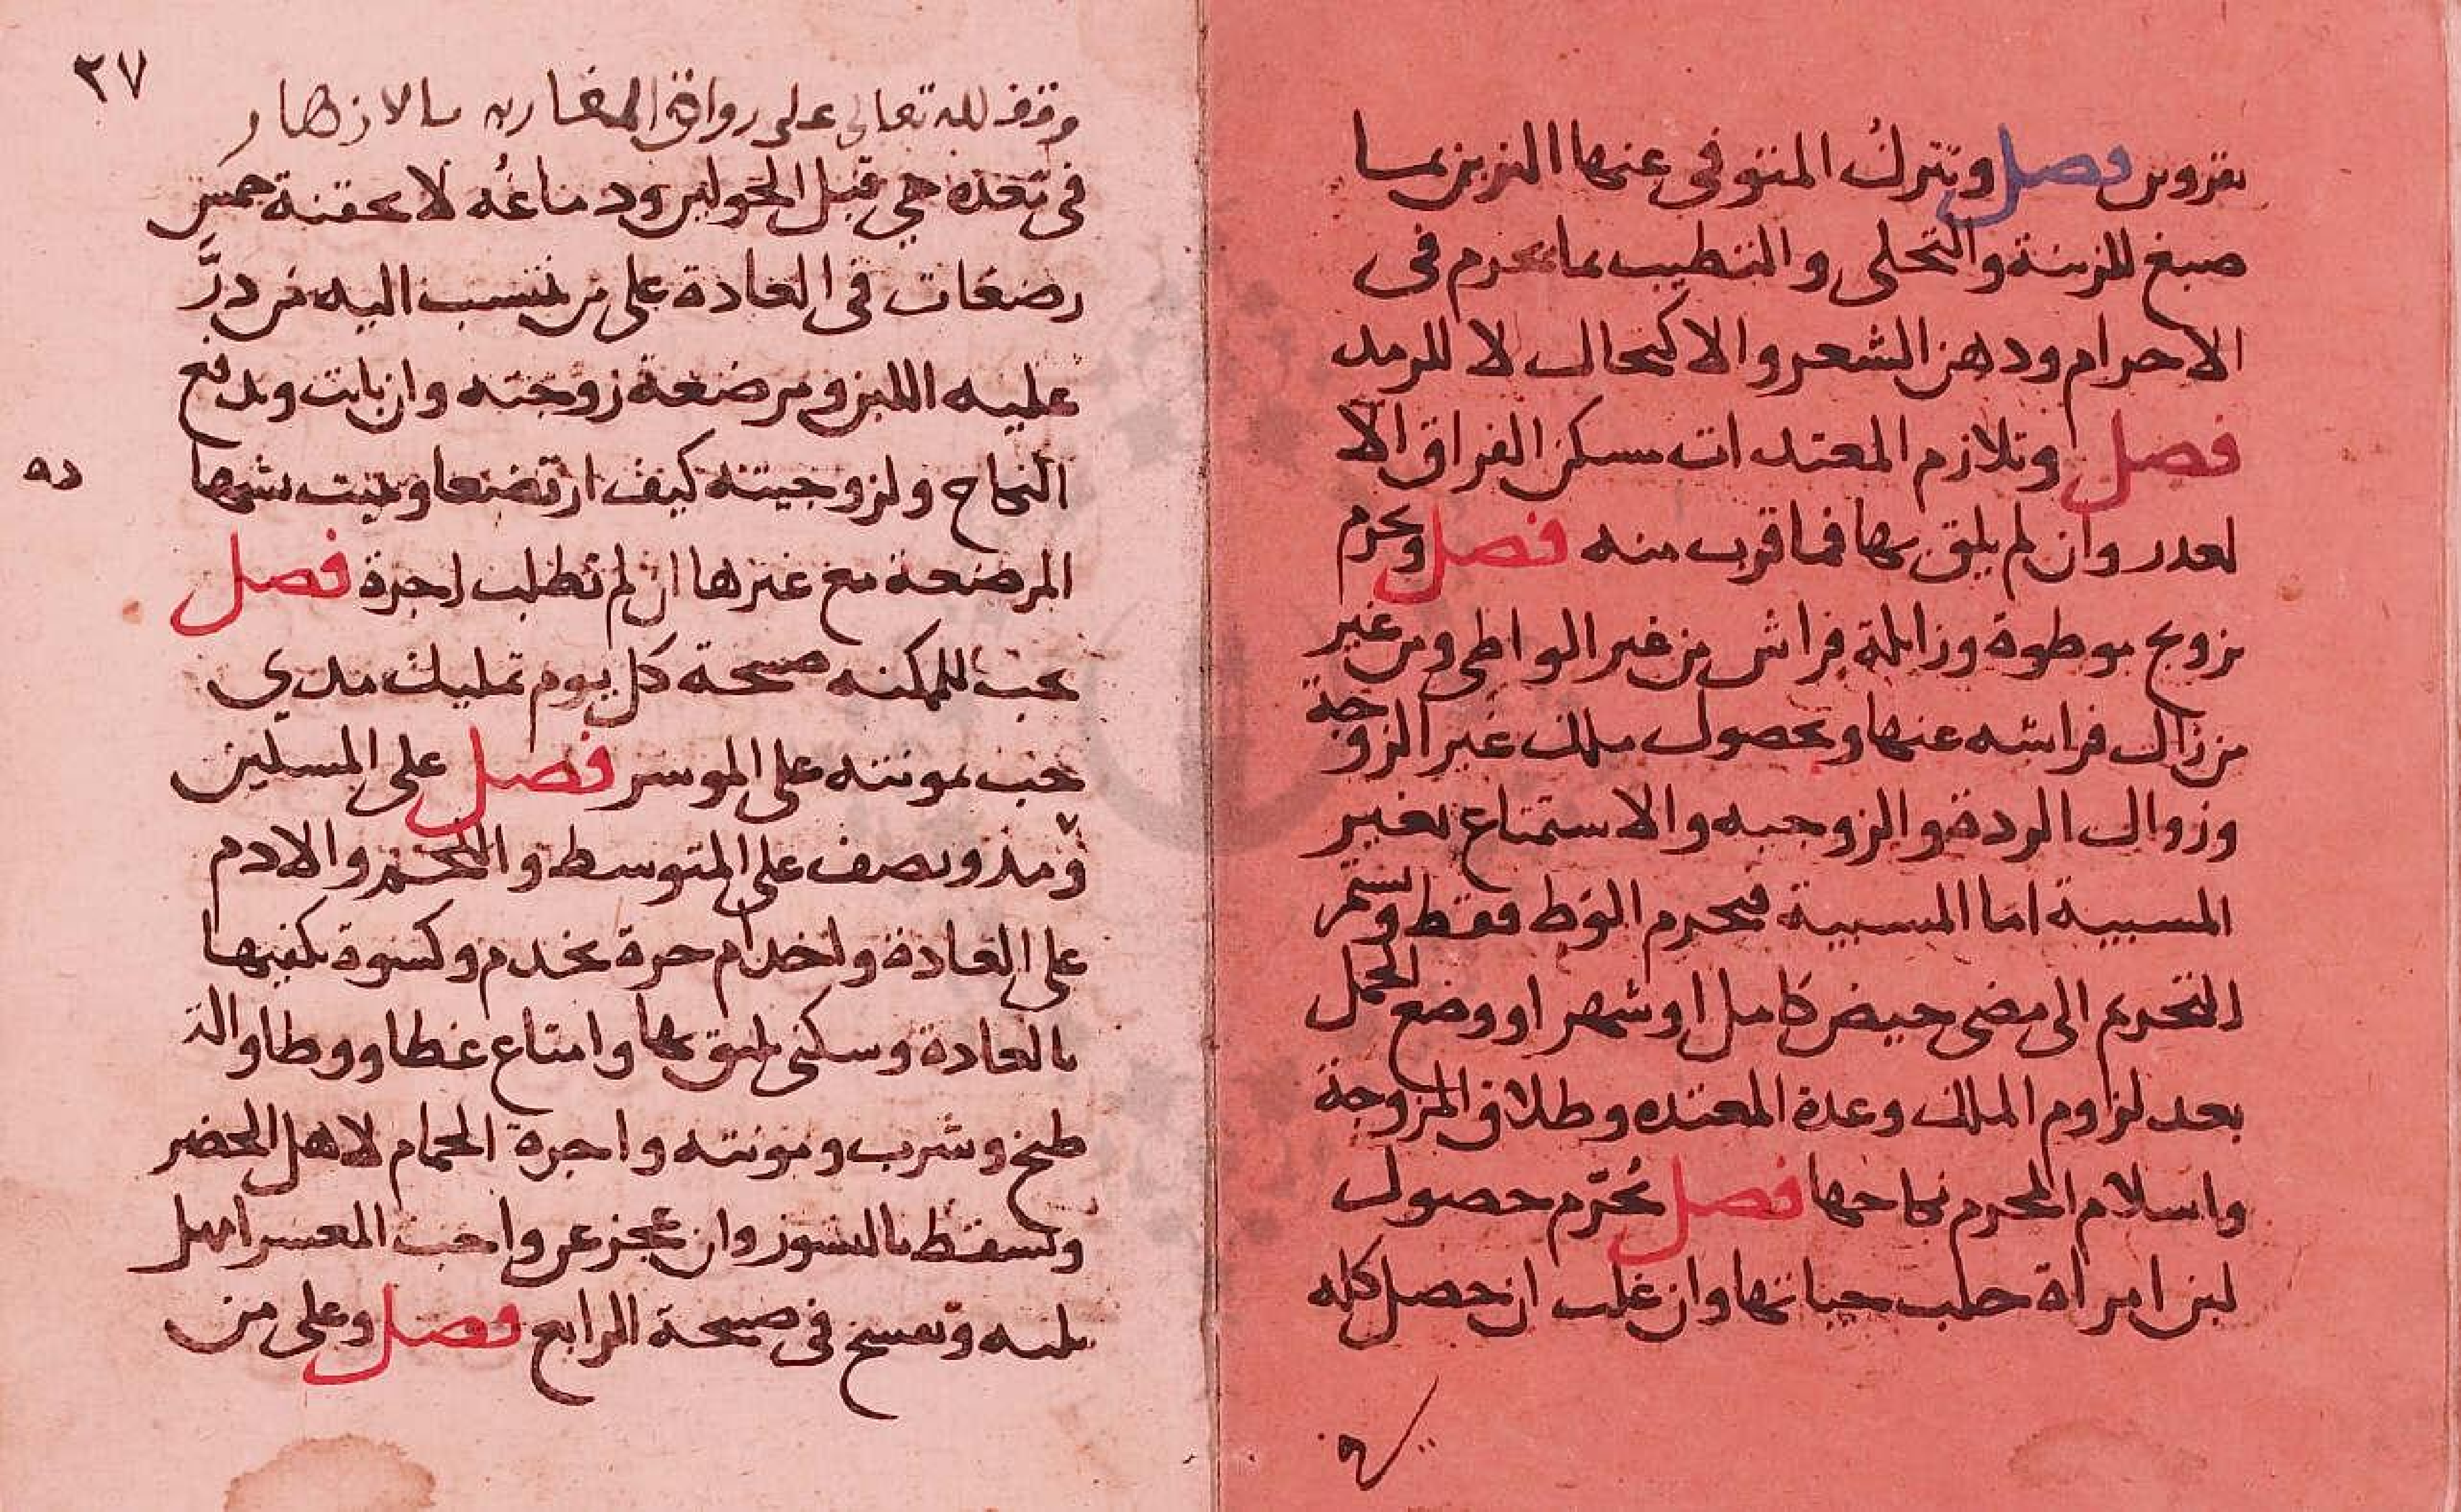 بقروين فصل وتترك المتوفى عنها التزين بما
صبغ للزينة والتحلى والتطيب بما يحرم فى
الاحرام ودهن الشعر والاكتحال لا للرمد
فصل وتلازم المعتدات مسكن الفراق الا
لعدر وان لم يلق بها فما قرب منه فصل ويحرم
تزويج موطوة وزايلة فراش من غير الواطى ومن غير
من زال فراشه عنها وبحصول ملك غير الزوجة
وزوال الردة والزوجيه والاستمتاع بغير
المسبية اما المسبية فيحرم الوط فقط ويستمر
التحريم الى مضى حيض كامل او شهر او وضع الحمل
بعد لزوم الملك وعدة المعتده وطلاق المزوجة
واسلام المحرم نكاحها فصل يُحرّم حصول
لبن امراة حلب حياتها وان غلب ان حصل كله
٢٧
وقف لله تعالى على رواق المغاربه بالازهار
فى معده حي قبل الحولين ودماغه لا بحقنة خمس
رضعات فى العادة على من ينسب اليه من درَّ
عليه اللبن ومرضعة زوجته وان بانت ويدفع
النكاح ولزوجيته كيف ارتضعا وبنت شهها
المرضعة مع غيرها ان لم تطلب اجرة فصل
يجب للممكنه صبيحة كل يوم تمليك مدي
حب بمونته على الموسر فصل على المسلين
ومد ونصف على المتوسط واللحم والادم
على العادة واخدام حرة تخدم وكسوة تكفيها
بالعادة وسكنى يليق بها وامتاع غطا ووطا والة
طبخ وشرب ومونته واجرة الحمام لاهل الحضر
وتسقط بالنشوز وان عجز عن واجب المعسر امهل
ثلثه وتفسخ فى صبيحة الرابع فصل وعلى من